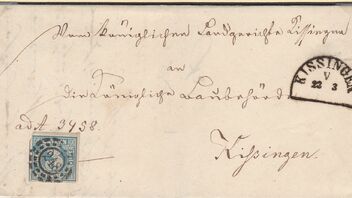 Vom königlichen Landgerichte Kissingen
an
die königliche Baubehörde
ad A 3958.
Kissingen.
KISSINGEN
V
22 3